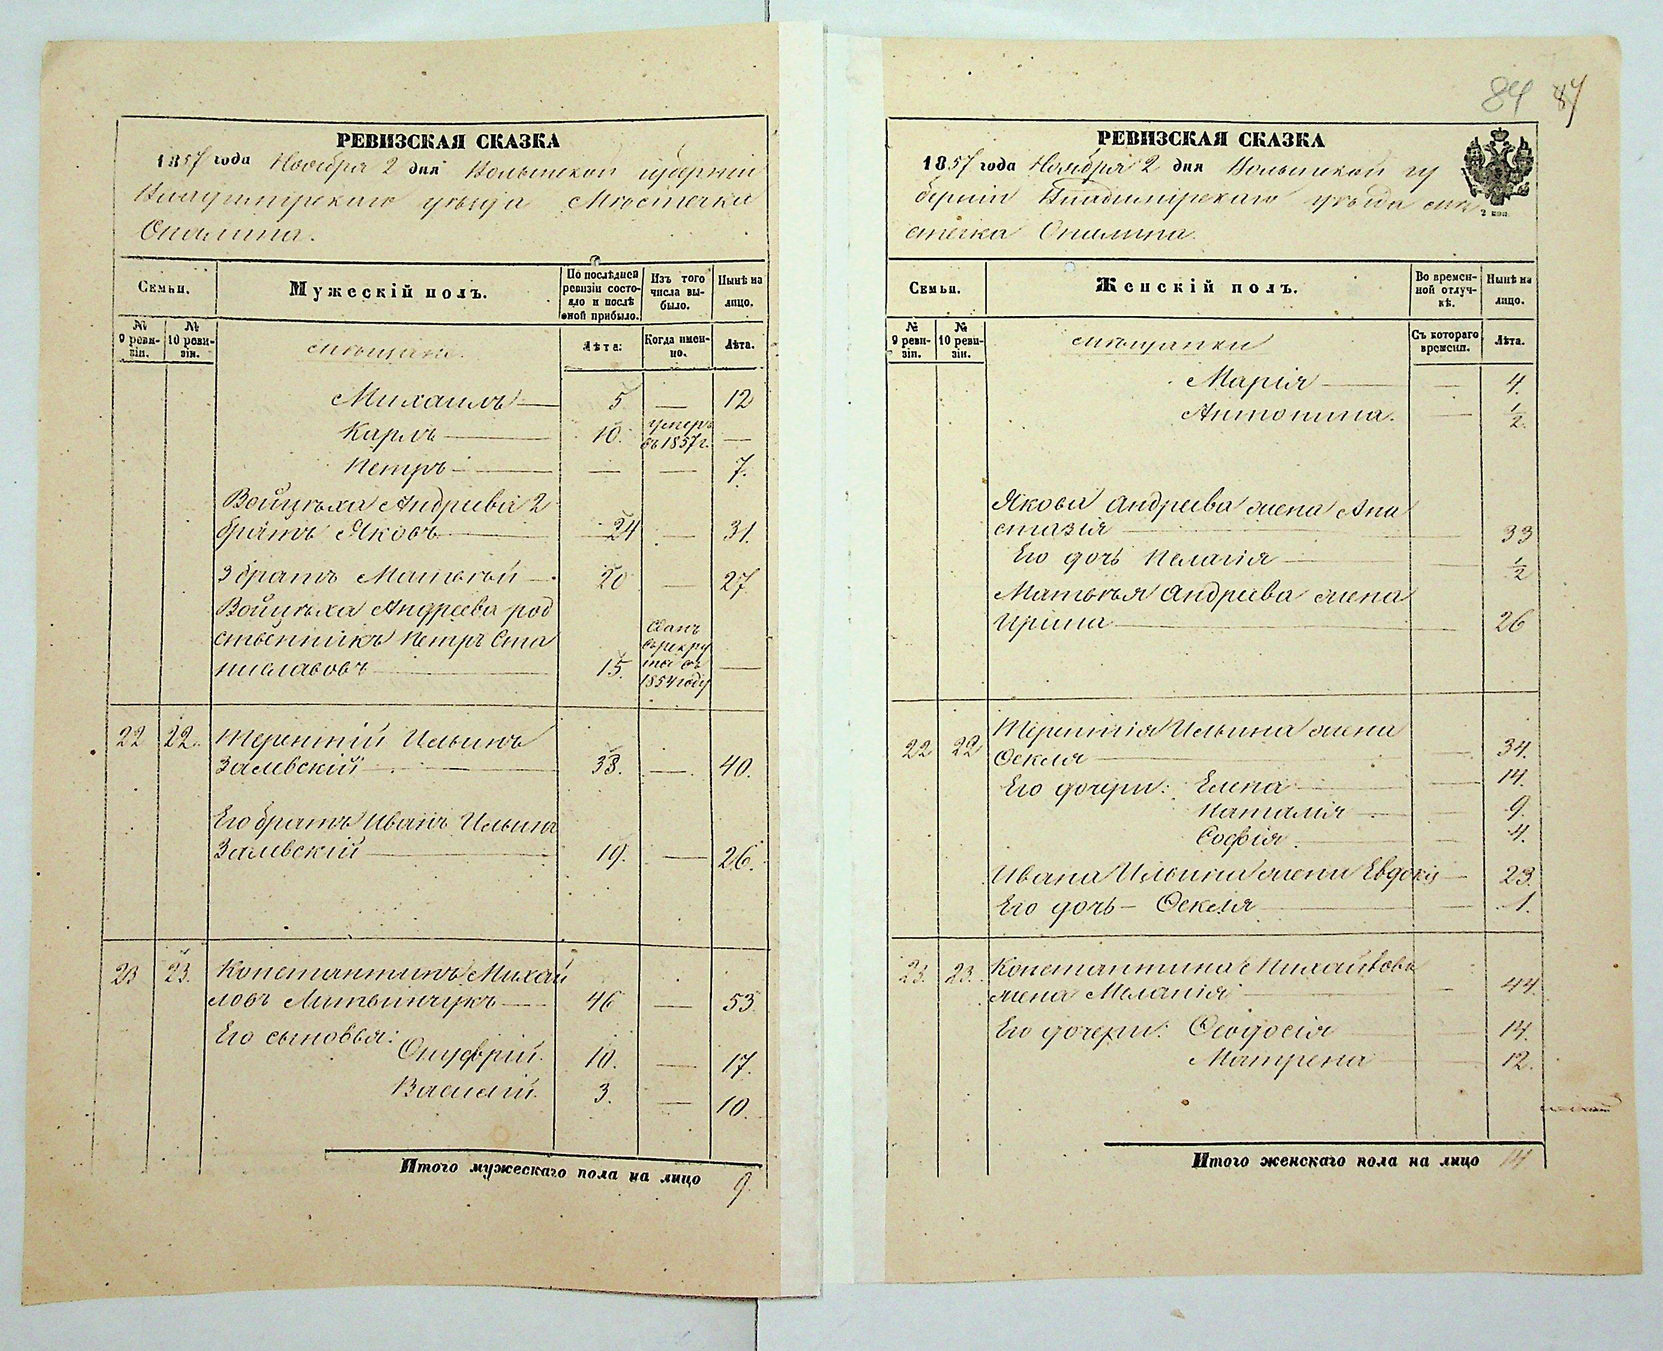 84 87
РЕВИЗСКАЯ СКАЗКА
1857 года Ноября 2 дня Волынской губерніи
Владимірскаго уѣзда Мѣстечка
Опалина.
Семьи.
Мужескій полъ.
По послѣдней ревизіи состояло и послѣ оной прибыло.
Изъ того числа выбыло.
Нынѣ на лицо.
№ 9 ревизіи.
№ 10 ревизіи.
мѣщане.
Лѣта.
Когда именно.
Лѣта.
Михаилъ — 5 — 12
Карлъ — 10. умеръ въ 1857 г. —
Петръ — — — 7.
Войцѣха Андреева 2
братъ Яковъ — 24 — 31.
3 братъ Матвѣй — 20 — 27
Войцѣха Андреева род
ственникъ Петръ Ста
ниславовъ — 15. сданъ въ рекруты въ 1854 году —
22 22. Терентій Ильинъ
Залевскій — 33. — 40.
Его братъ Иванъ Ильинъ
Залевскій — 19. — 26.
23 23. Константинъ Михай
ловъ Литвинчукъ — 46 — 53
Его сыновья:
Онуфрій. 10. — 17.
Василій. 3. — 10.
Итого мужескаго пола на лицо 9.
РЕВИЗСКАЯ СКАЗКА
1857 года Ноября 2 дня Волынской гу
берніи Владимірскаго уѣзда мѣ
стечка Опалина.
2 коп.
Семьи.
Женскій полъ.
Во временной отлучкѣ.
Нынѣ на лицо.
№ 9 ревизіи.
№ 10 ревизіи.
мѣщанки
Съ котораго времени.
Лѣта.
Марія — — 4.
Антонина. — 1/2.
Якова Андреева жена Ана
стазія — — 33
Его дочь Пелагія — — 1/2
Матвѣя Андреева жена
Ирина — — 26
22 22 Терентія Ильина жена
Ѳекля — — 34.
Его дочери: Елена — — 14.
Наталія — — 9.
Софія. — — 4.
Ивана Ильина жена Евдокія — 23.
Его дочь — Ѳекля — — 1.
23. 23. Константина Михайлова
жена Меланія — — 44.
Его дочери: Ѳеодосія — — 14.
Матрена — — 12.
Итого женскаго пола на лицо 14